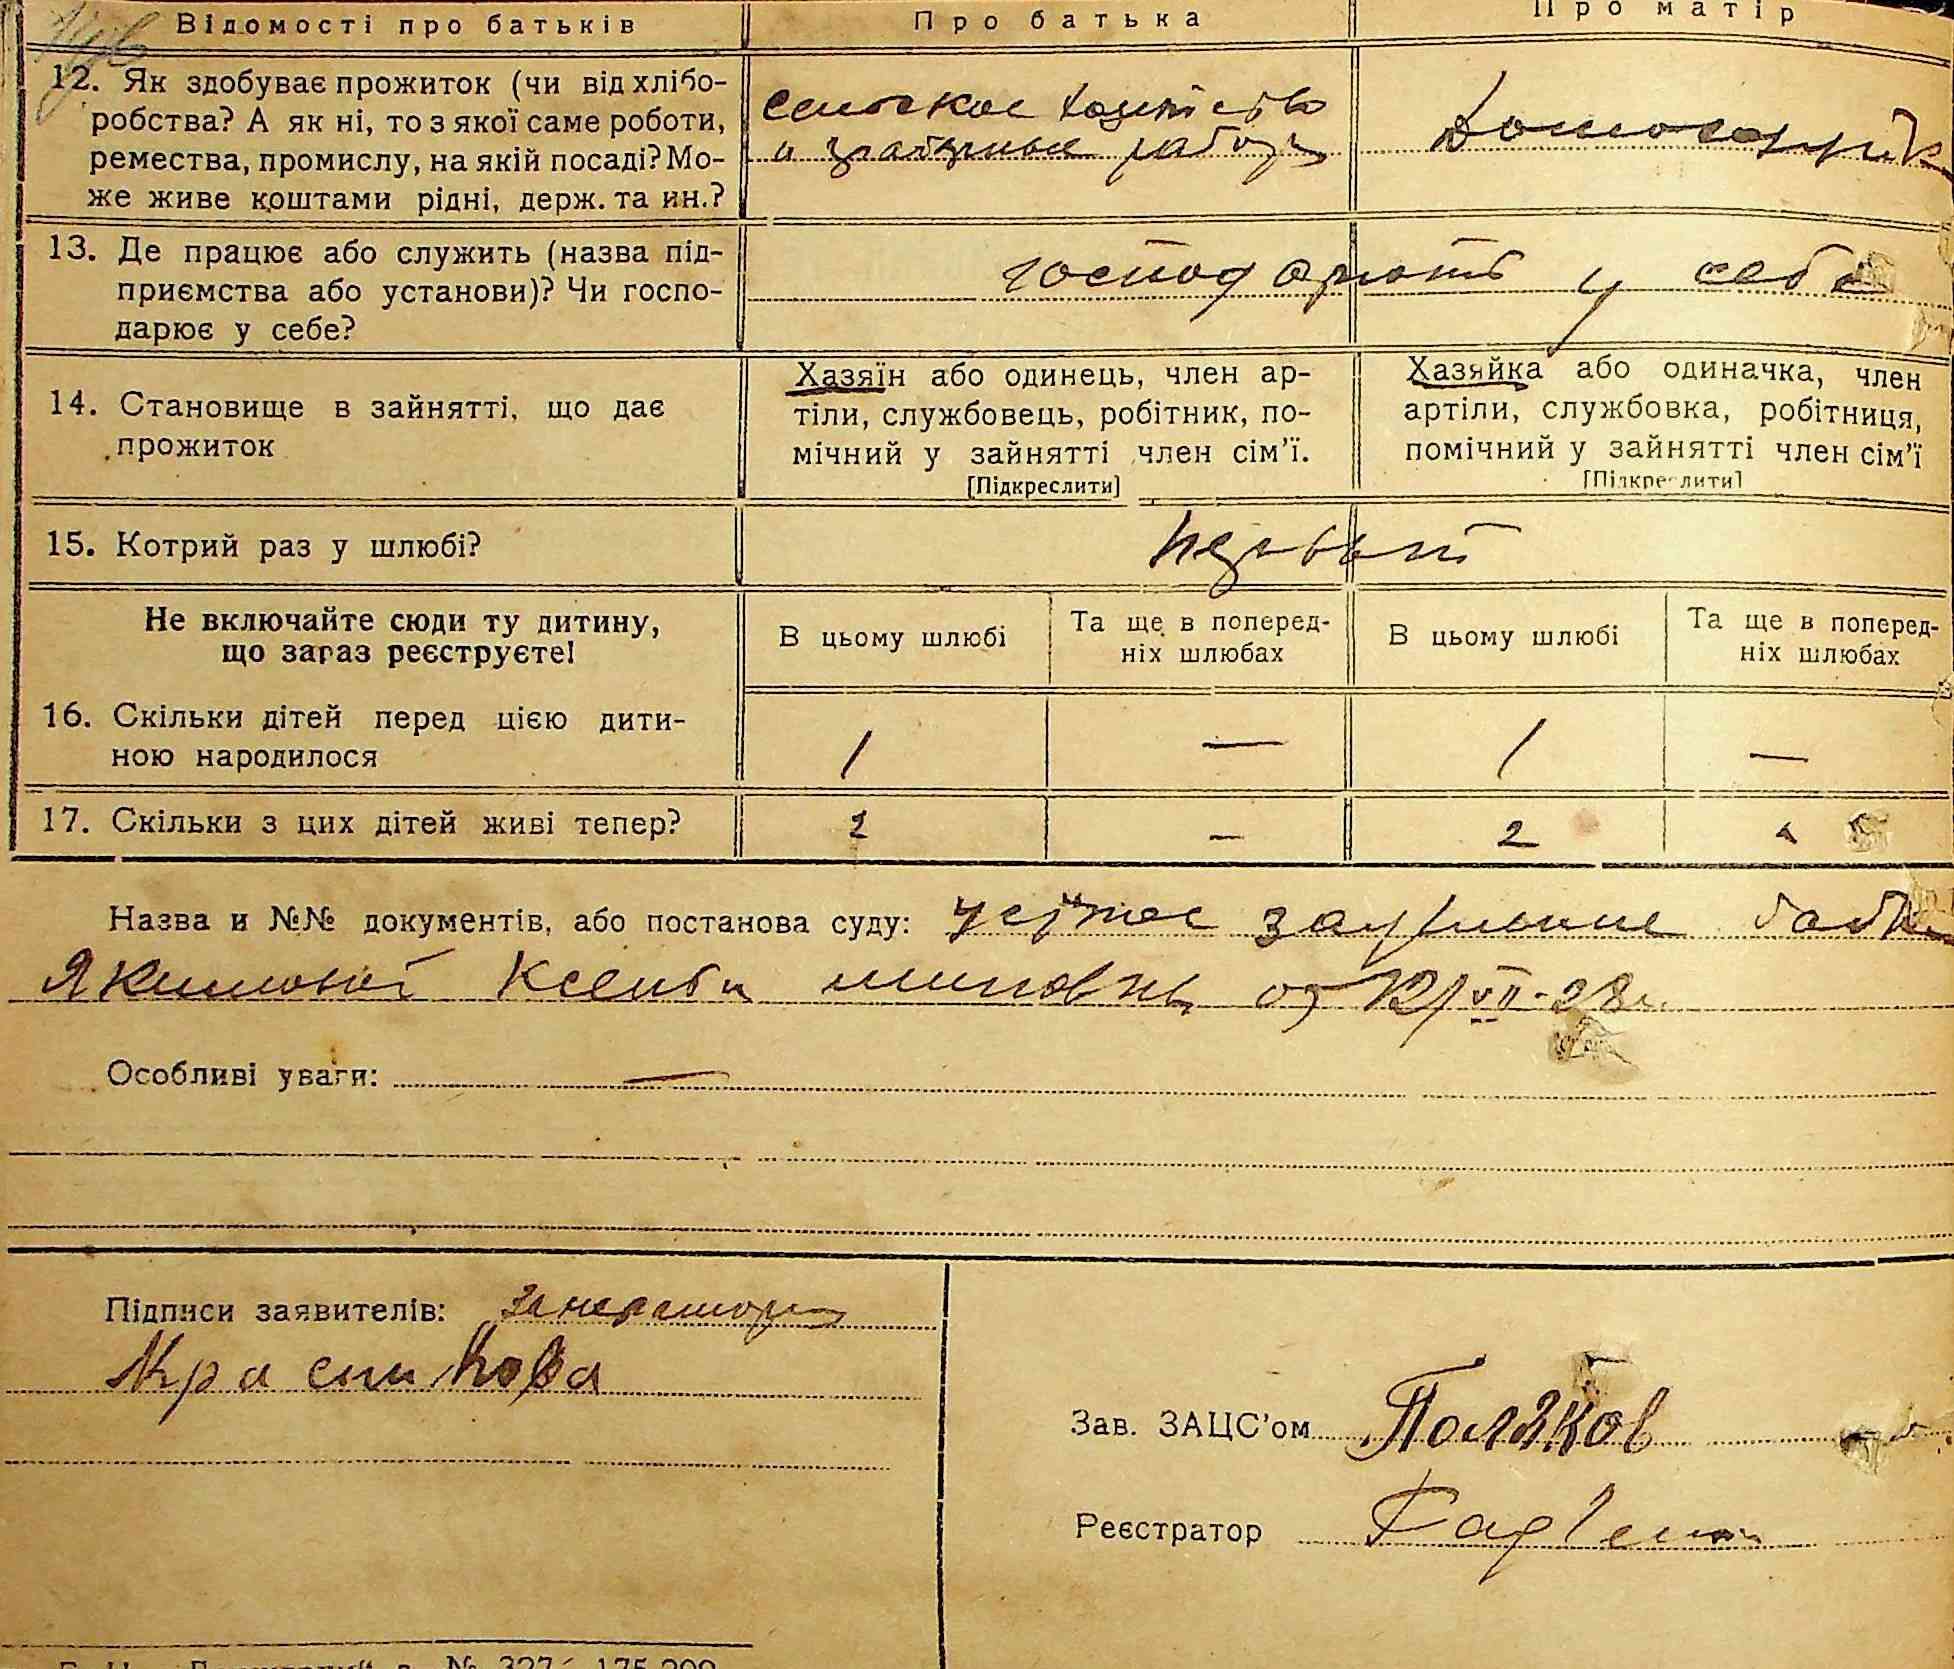 Відомості про батьків
Про батька
Про матір
12. Як здобуває прожиток (чи від хлібо-
робства? А як ні, то з якої саме роботи,
ремества, промислу, на якій посаді? Мо-
же живе коштами рідні, держ. та ин.?
сельское
и работы
13. Де працює або служить (назва під-
приємства або установи)? Чи госпо-
дарює у себе?
господарють у себе
14. Становище в зайнятті, що дає
прожиток
Хазяїн або одинець, член ар-
тіли, службовець, робітник, по-
мічний у зайнятті член сім'ї.
[Підкреслити]
Хазяйка або одиначка, член
артіли, службовка, робітниця,
помічний у зайнятті член сім'ї
[Підкреслити]
15. Котрий раз у шлюбі?
первый
Не включайте сюди ту дитину,
що зараз реєструєте!
В цьому шлюбі
Та ще в поперед-
ніх шлюбах
В цьому шлюбі
Та ще в поперед-
ніх шлюбах
16. Скільки дітей перед цією дити-
ною народилося
1 — 1 —
17. Скільки з цих дітей живі тепер?
2 — 2
Назва и №№ документів, або постанова суду: устное заявление бабки
Якимовой от 12/VII-28г.
Особливі уваги: —
Підписи заявителів:
Красникова
Зав. ЗАЦС'ом Поляков
Реєстратор
№ 327